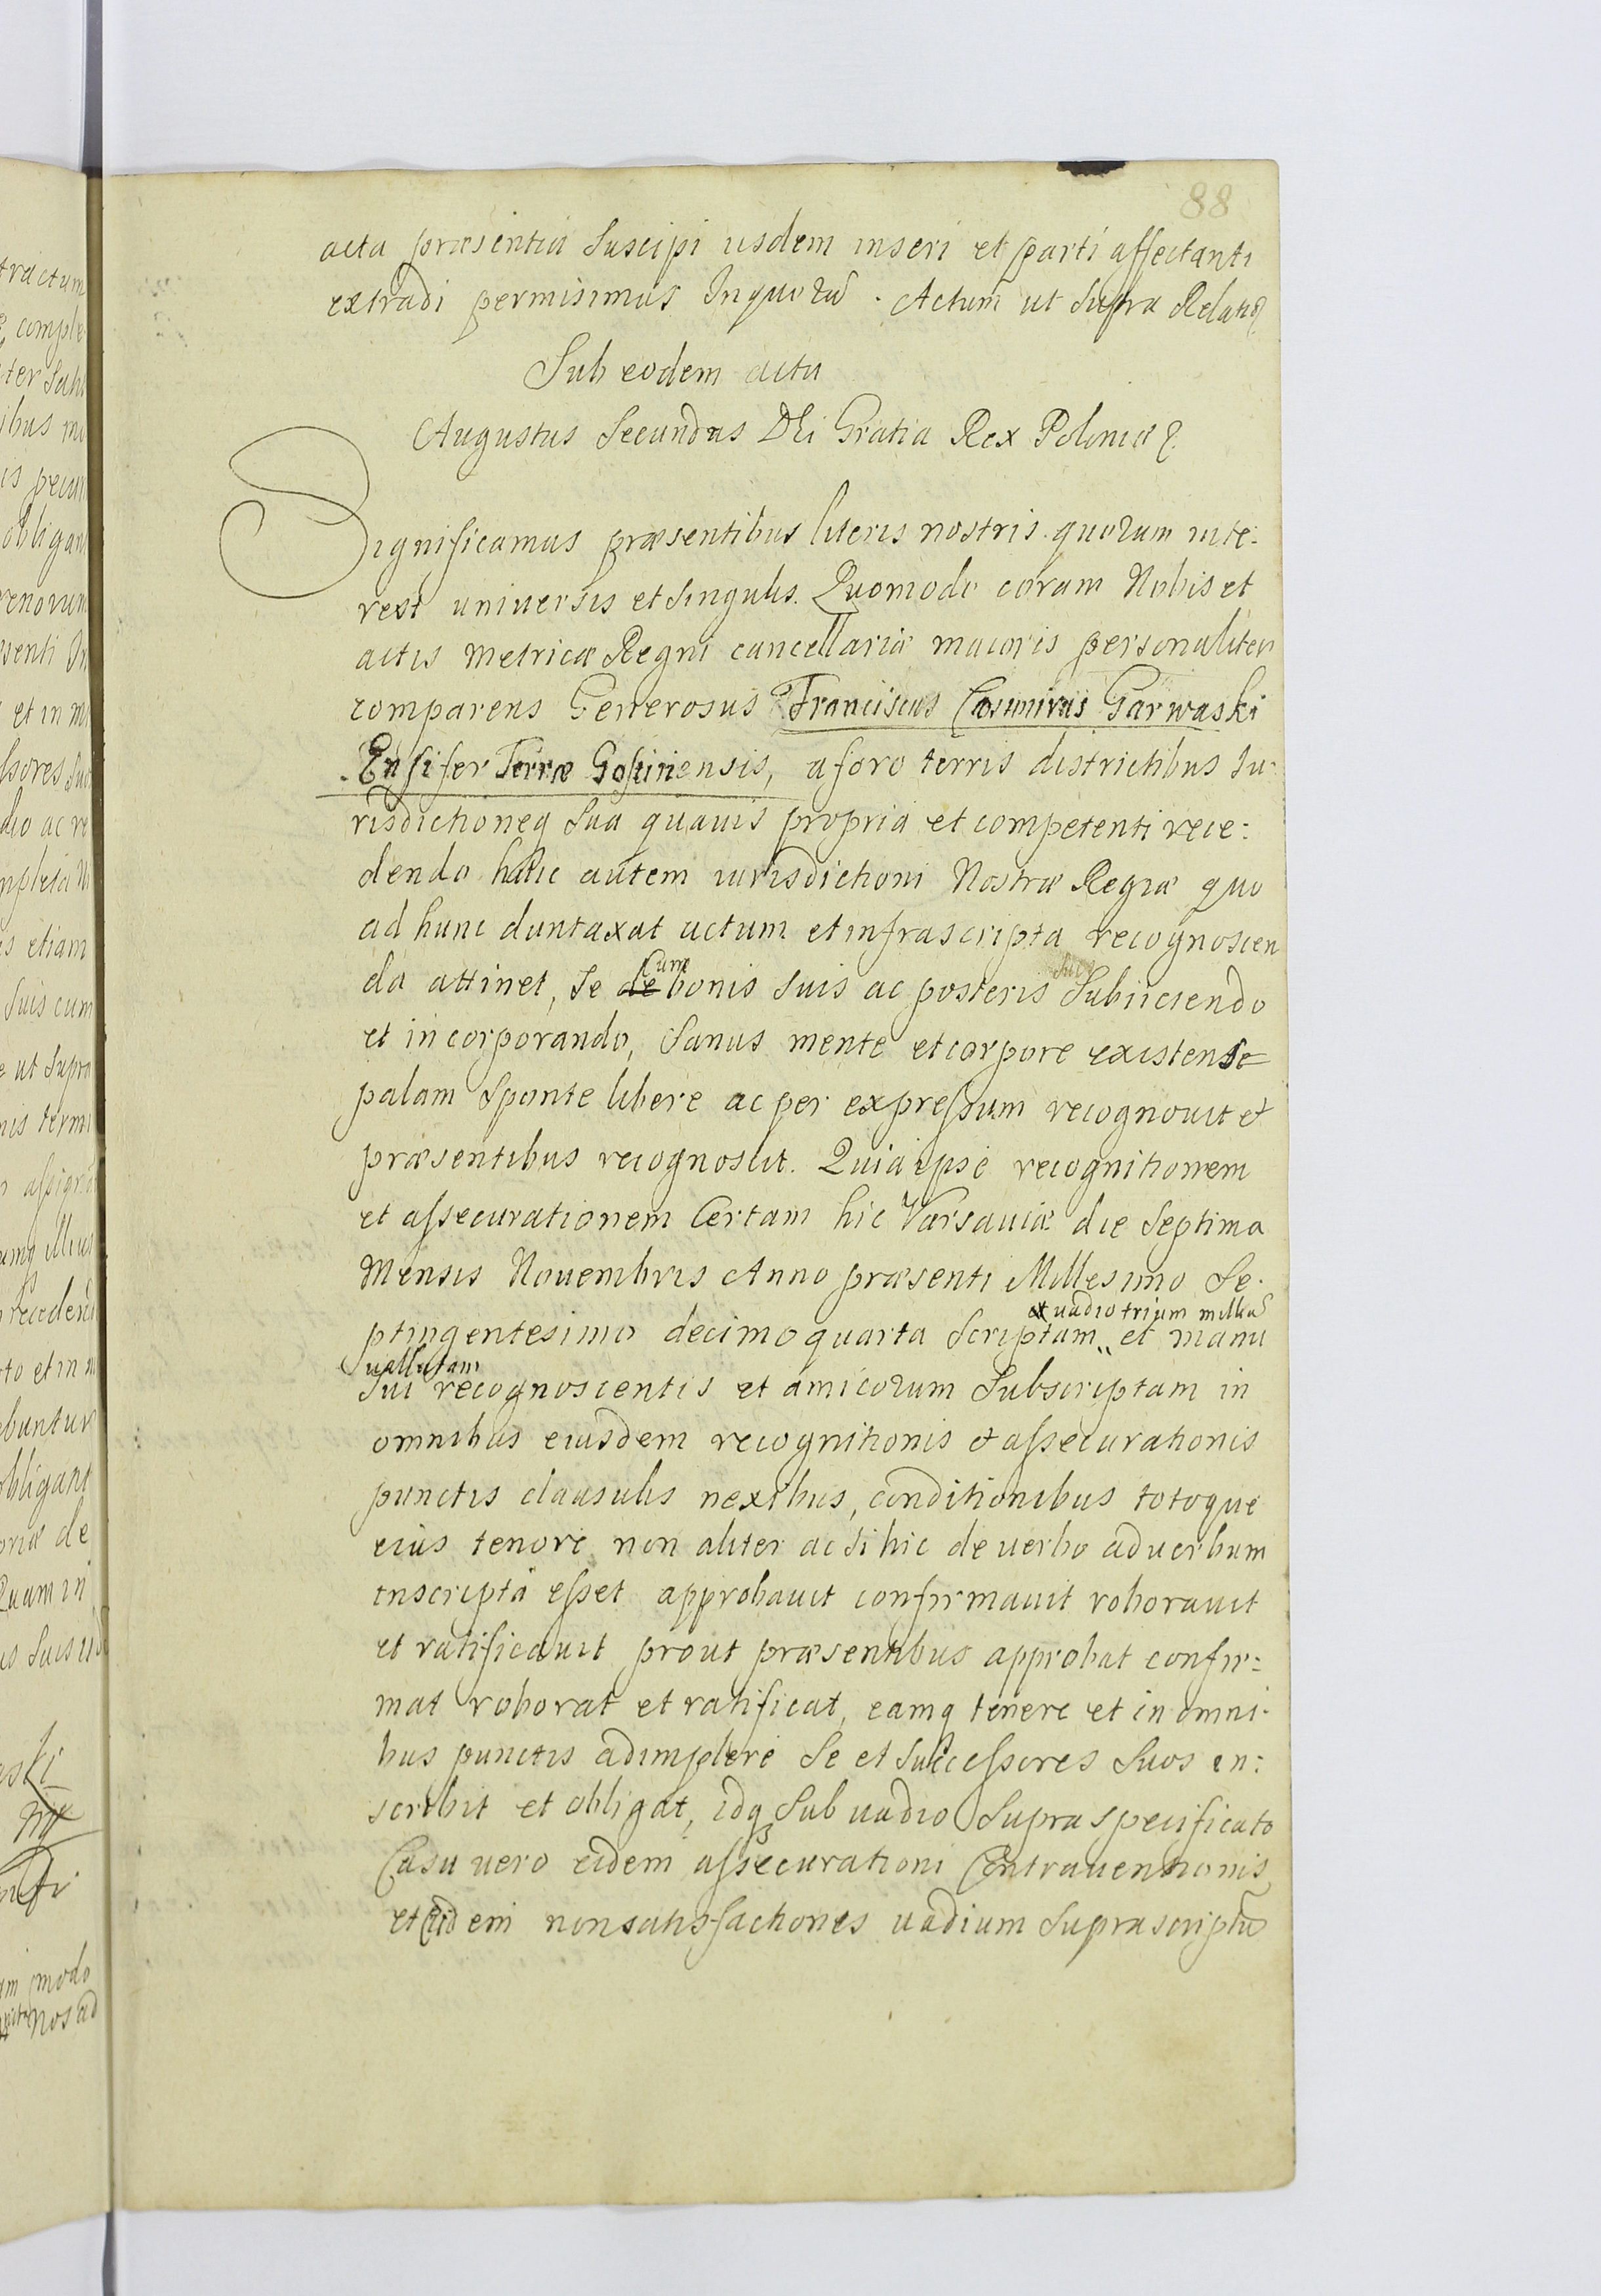 88
acta præsentia Suscipi iisdem inseri et parti affectanti
extradi permisimus In quorū. Actum ut Supra Relatio
Sub eodem actu
Augustus Secundus Dei Gratia Rex Poloniæ
Significamus præsentibus literis nostris quorum inte:
rest universis et Singulis. Quomodo coram Nobis et
actis Metricæ Regni cancellariæ maioris personaliter
comparens Generosus Franciscus Casimirus Garwaski
Ensifer Terræ Gostinensis, a foro terris districtibus Iu
risdictioneq Sua quavis propria et competenti rece:
dendo hanc autem iurisdictioni Nostræ Regiæ quo
ad hunc duntaxat actum et infrascripta recognoscen
da attinet, Se de Cum bonis suis ac posteris Suis Subiiciendo
et incorporando, Sanus mente et corpore existens
palam Sponte libere ac per expressum recognovit et
præsentibus recognoscit. Quia ipse recognitionem
et assecurationem Certam hic Varsaviæ die Septima
Mensis Novembris Anno præsenti Millesimo Se.
ptingentesimo decimo quarta Scriptam,, et manu
et vadio trium milliū
vallatam
Sui recognoscentis et amicorum Subscriptam in
omnibus eiusdem recognitionis et assecurationis
punctis clausulis nexibus, conditionibus totoque
eius tenore non aliter ac Si hic de verbo ad verbum
inscripta esset approbavit confirmavit roboravit
et ratificavit prout præsentibus approbat confir:
mat roborat et ratificat, eamq tenere et in omni.
bus punctis adimplere Se et Successores Suos in:
scribit et obligat, idq Sub vadio Supra specificato
Casu vero eidem assecurationi Contraventionis
et eidem non satisfactiones vadium Suprascriptū